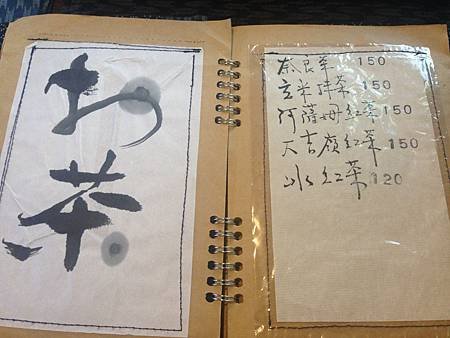 お茶
奈良茶 150
玄米拌茶 150
阿薩姆紅茶 150
大吉嶺紅茶 150
冰紅茶 120